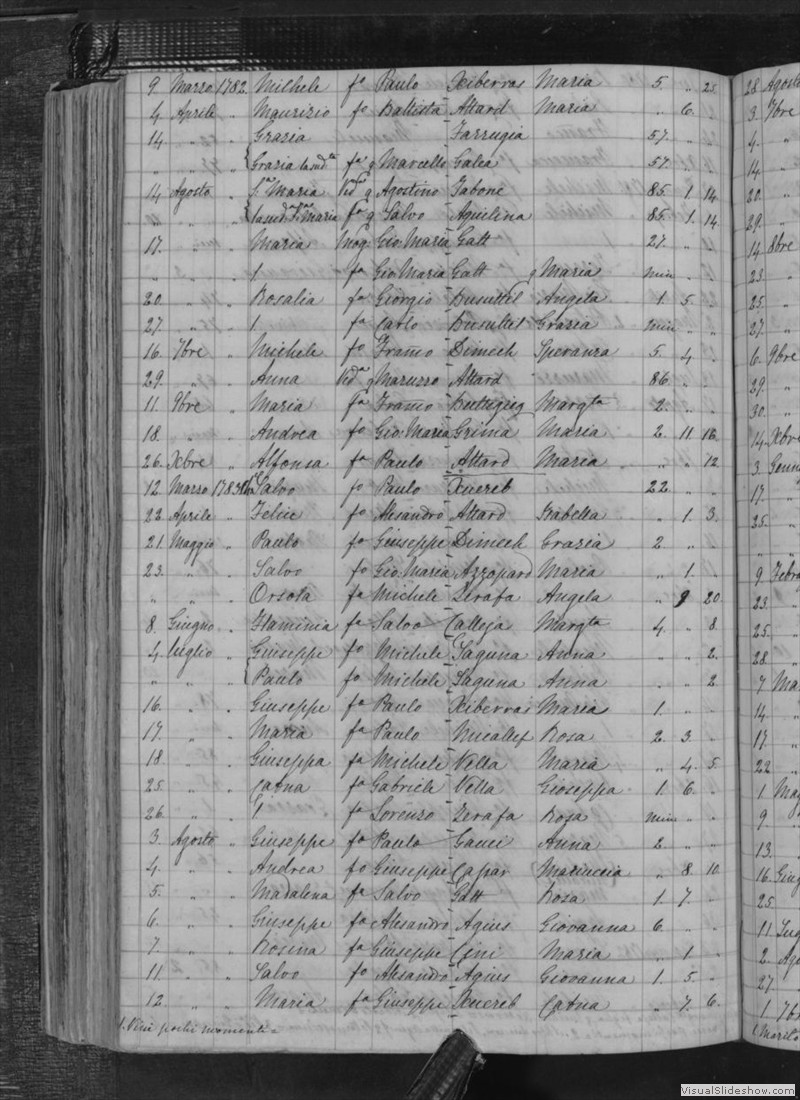 9 Marzo 1782 Michele fo Paulo Xiberras Maria 5 " 25
4 Aprile " Maurizio fo Battista Attard Maria " 6 "
14 " " Grazia Farrugia 57 " "
" " " Grazia fa q Marcello Galea 57 " "
14 Agosto " Maria Vida q Agostino Tabone 85 1 14
" " " Maria fa q Salvo Aquilina 85 1 14
17 " " Maria Mog. Gio Maria Gatt 27 " "
" " " 1 fa Gio Maria Gatt q Maria min " "
20 " " Rosalia fa Giorgio Busuttil Angela 1 5 "
27 " " 1 fa Carlo Busuttil Grazia min " "
16 7bre " Michele fo Franco Dimech Speranza 5 4 "
29 " " Anna Vida q Maruzzo Attard 86 " "
11 9bre " Maria fa Franco Buttigieg Margta 2 " "
18 " " Andrea fo Gio Maria Grima Maria 2 11 16
26 Xbre " Alfonsa fa Paulo Attard Maria " " 12
12 Marzo 1783 Salvo fo Paulo Xuereb 22 " "
22 Aprile " Felice fo Alesandro Attard Isabella " 1 3
21 Maggio " Paulo fo Giuseppe Dimech Grazia 2 " "
23 " " Salvo fo Gio Maria Azzopard Maria " 1 "
" " " Orsola fa Michele Zerafa Angela " 9 20
8 Giugno " Flaminia fa Salvo Calleja Margta 4 " 8
4 luglio " Giuseppe fo Michele Saguna Anna " " 2
" " " Paulo fo Michele Saguna Anna " " 2
16 " " Giuseppe fo Paulo Xiberras Maria 1 " "
17 " " Maria fa Paulo Micallef Rosa 2 3 "
18 " " Giuseppa fa Michele Vella Maria " 4 5
25 " " Catna fa Gabriele Vella Gioseppa 1 6 "
26 " " 1 fa Lorenzo Zerafa Rosa min " "
3 Agosto " Giuseppe fo Paulo Gauci Anna 2 " "
4 " " Andrea fo Giuseppe Capar Mariuccia " 8 10
5 " " Madalena fa Salvo Gatt Rosa 1 7 "
6 " " Giuseppe fo Alesandro Agius Giovanna 6 " "
7 " " Rosina fa Giuseppe Cini Maria " 1 "
11 " " Salvo fo Alesandro Agius Giovanna 1 5 "
12 " " Maria fa Giuseppe Xuereb Catna " 7 6
1. Visse pochi momenti
28 Agosto
3 7bre
4
14
20
29
14 8bre
23
25
27
6 9bre
29
30
14 Xbre
3
17
25
"
9
23
25
28
7
14
17
22
1
9
13
16
25
11
2
27
1 7bre
VisualSlideshow.com